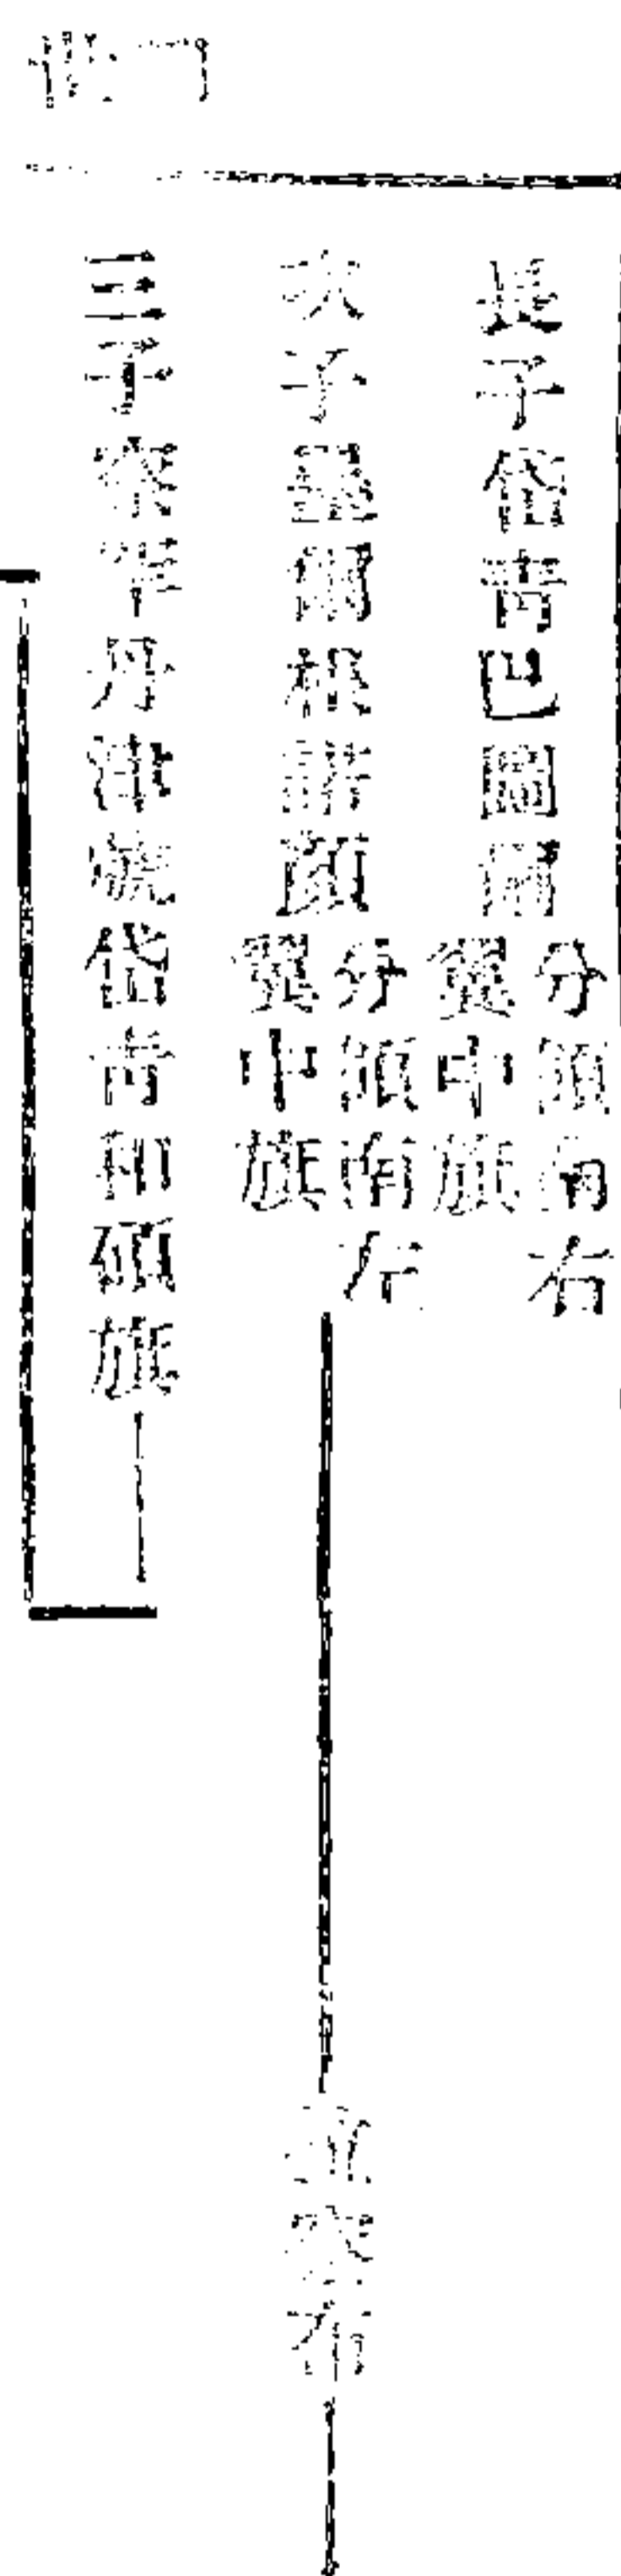 長子岱青巴圖爾 分領南右翼中旗
次子墨爾根諾顏 分領南左翼中旗
三子察罕丹津號岱青和碩旗
察布